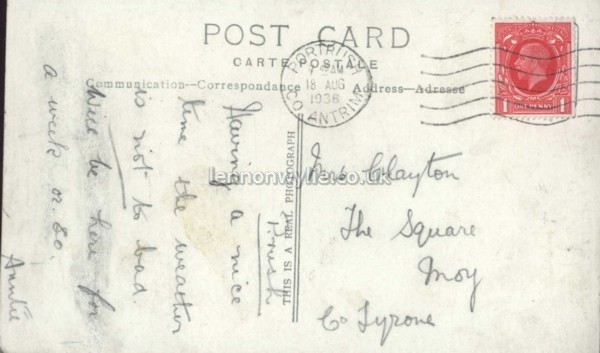 POST CARD
CARTE POSTALE
Communication—Correspondance
Address—Adresse
PORTRUSH
18 AUG
1936
CO. ANTRIM
ONE PENNY
1
THIS IS A REAL PHOTOGRAPH
P.rush
Having a nice
time the weather
is not to bad.
Will be here for
a week or so.
Auntie
Mrs Clayton
The Square
Moy
Co Tyrone
lennonwylie.co.uk